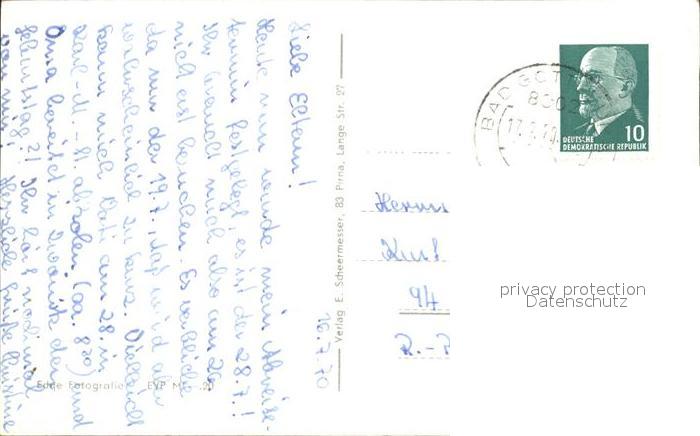 16.7.70
Liebe Eltern!
Heute nun wurde mein Abreise-
termin festgelegt, es ist der 28.7.!
Ihr braucht mich also am 26.
nicht erst besuchen. Es verbliebe
da nur der 19.7., das wird aber
wahrscheinlich zu kurz. Vielleicht
kann mich Vati am 28. in
Karl-M.-St. abholen (ca. 8³⁰) und
Oma bereitet in den
Geburtstag?!
von mir! Herzliche Grüße Christine
Echte Fotografie EVP M -.20
Verlag E. Scheermesser, 83 Pirna, Lange Str. 27
BAD GOTT
8302
17.7.70
DEUTSCHE
DEMOKRATISCHE REPUBLIK
10
Herrn
Kurt
94
privacy protection
Datenschutz